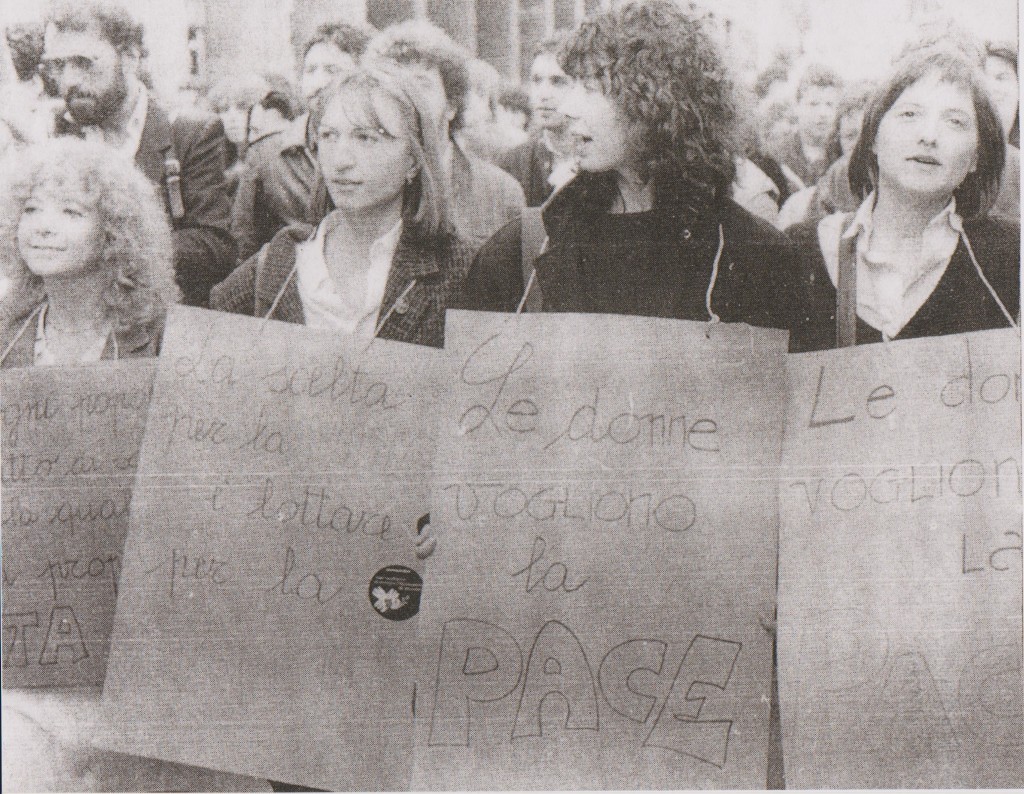 ogni popo
tto
la qual
prop
TA
La scelta
per la
è lottare
per la
Le donne
VOGLIONO
la
PACE
Le don
VOGLION
LA
PAC